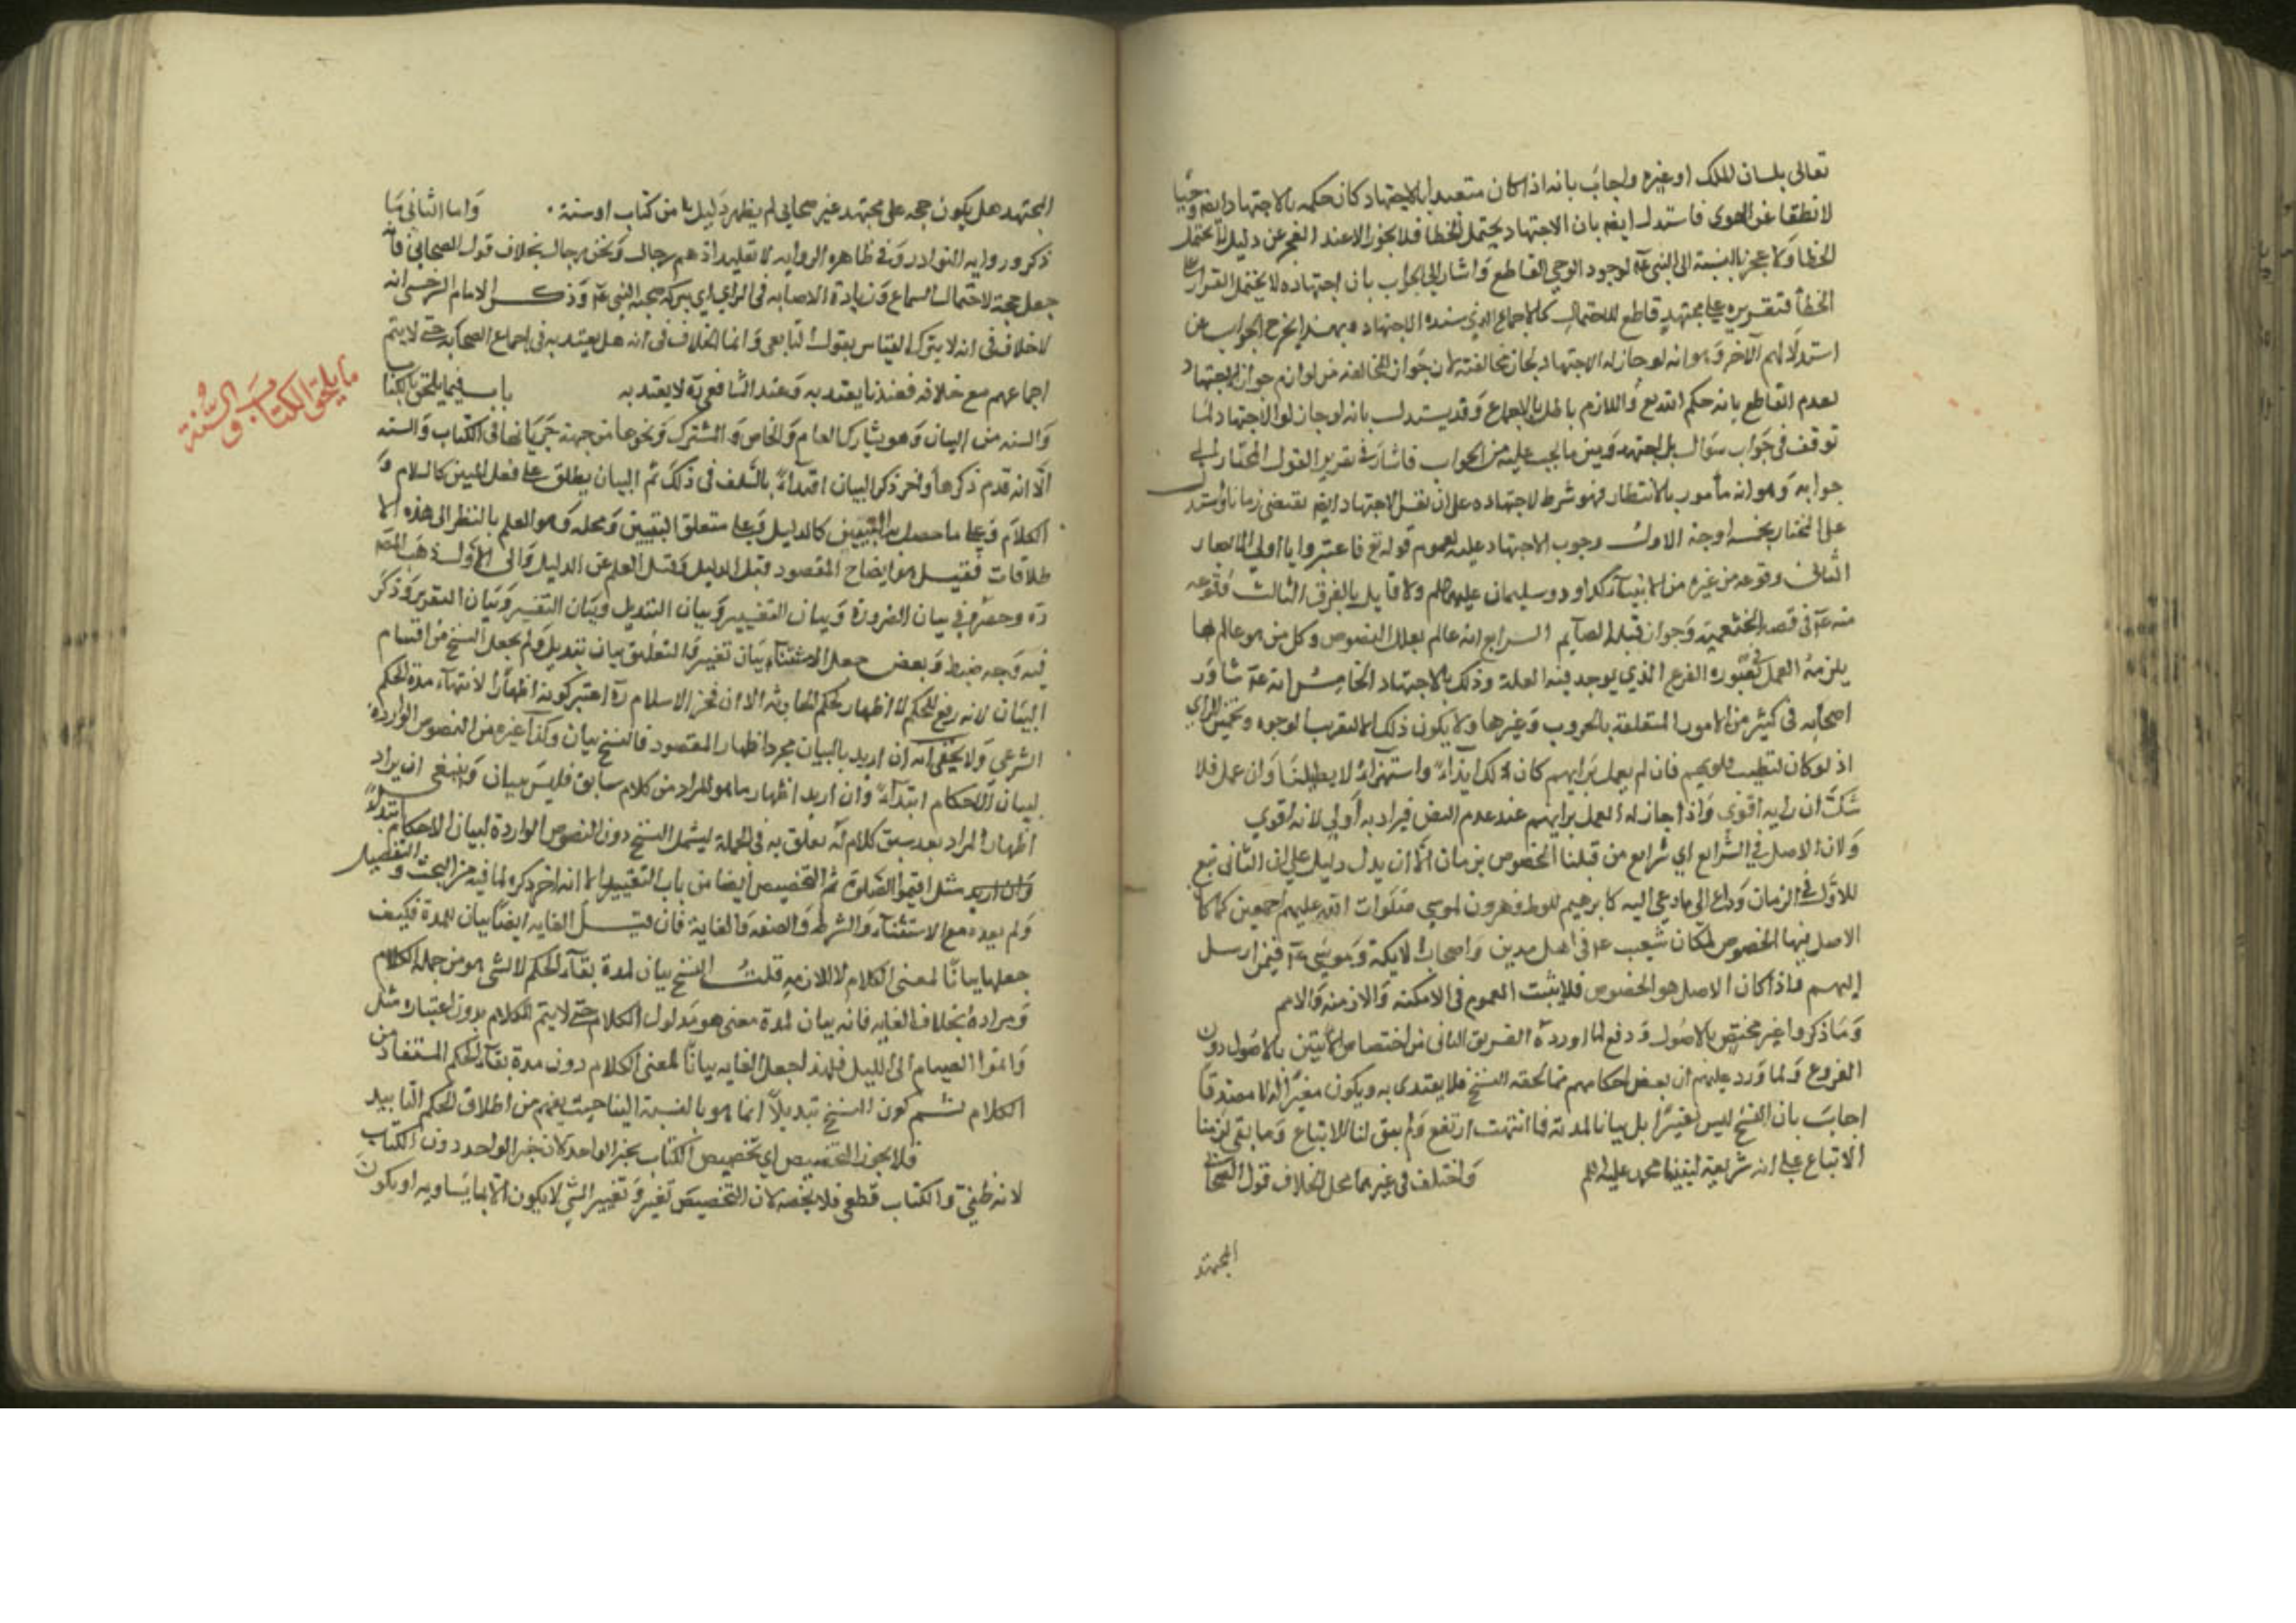 تعالى بلسان الملك او غيره واجاب بانه اذا كان متعبدا بالاجتهاد كان حكمه بالاجتهاد ايضا وحيا
لا نطقا عن الهوى فاستدل ايضا بان الاجتهاد يحتمل الخطا فلا يجوز الا عند العجز عن دليل لا يحتمل
الخطا ولا عجز بالنسبة الى النبي عم لوجود الوحي القاطع واشار الى الجواب بان اجتهاده لا يحتمل القرار على
الخطأ فتقريره على مجتهده قاطع للاحتمال كالاجماع الذي سنده الاجتهاد وبهذا يخرج الجواب عن
استدلالهم الآخر وهو انه لو جاز له الاجتهاد لجاز مخالفته لان جواز المخالفة من لوازم جواز الاجتهاد
لعدم القاطع بانه حكم الله تع واللازم باطل بالاجماع وقد يستدل بانه لو جاز له الاجتهاد لما
توقف في جواب سوال بل اجتهد وبين ما يجب عليه من الجواب فاشار في تقرير القول المختار الى
جوابه وهو انه مأمور بالانتظار فهو شرط لاجتهاده على ان نفس الاجتهاد ايضا يقتضي زمانا واستدل
على المختار بخمسة اوجه الاول وجوب الاجتهاد عليه لعموم قوله تع فاعتبروا يا اولي الابصار
الثاني وقوعه من غيره من الانبياء كداود وسليمان عليهم السلم ولا قايل بالفرق الثالث وقوعه
منه عم في قصة الخثعمية وجواز قبلة الصايم الرابع انه عالم بعلل النصوص وكل من هو عالم بها
يلزمه العمل في صورة الفرع الذي يوجد فيه العلة وذلك بالاجتهاد الخامس انه عم شاور
اصحابه في كثير من الامور المتعلقة بالحروب وغيرها ولا يكون ذلك الا لتقريب الوجوه وتخمير الراي
اذ لو كان لتطييب قلوبهم فان لم يعمل برايهم كان ذلك ايذاء واستهزاء لا تطييبا وان عمل فلا
شك ان رايه اقوى واذا جاز له العمل برايهم عند عدم النص فبرايه أولى لانه اقوي
ولان الاصل في الشرايع اي شرايع من قبلنا الخصوص بزمان الا ان يدل دليل على ان الثاني تبع
للاول في الزمان وداع الى ما دعي اليه كابرهيم للوط وهرون لموسي صلوات الله عليهم اجمعين كما كان
الاصل فيها الخصوص بمكان شعيب عم في اهل مدين واصحاب الايكة وموسى عم فيمن ارسل
إليهم فاذا كان الاصل هو الخصوص فلا يثبت العموم في الامكنه والازمنه والامم
وما ذكروا غير مختص بالاصول دفع لما اورده الفريق الثاني من اختصاص الآيتين بالاصول دون
الفروع ولما ورد عليهم ان بعض احكامهم مما لحقه النسخ فلا يقتدى به ويكون مغيرا له لا مصدقا
اجاب بان النسخ ليس تغييرا بل بيانا لمدته فاذا انتهت ارتفع ولم يبق لنا الاتباع وما بقي لزمنا
الاتباع على انه شريعة لنبينا محمد عليه السلم واختلف في غيرهما محل الخلاف قول الصحابي
المجتهد
المجتهد هل يكون حجة على مجتهد غير صحابي لم يظهر دليل ما من كتاب او سنة . واما الثاني فما
ذكر ورواية النوادر وفي ظاهر الرواية لا تقليد اذ هم رجال ونحن رجال بخلاف قول الصحابي فانه
جعل حجة لاحتمال السماع وزيادة الاصابه في الراي اي ببركة صحبة النبي عم وذكر الامام السرخسي انه
لا خلاف في انه لا يترك القياس بقول التابعي وانما الخلاف في انه هل يعتد به في اجماع الصحابه حتى لا يتم
اجماعهم مع خلافه فعندنا يعتد به وعند الشافعي ره لا يعتد به باب فيما يلحق بالكتاب
ما يلحق بالكتاب والسنة
والسنه من البيان وهو يشارك العام والخاص والمشترك ونحوها من جهة جريانها في الكتاب والسنه
الا انه قدم ذكرها وأخر ذكر البيان اقتداء بالسلف في ذلك ثم البيان يطلق على فعل المبين كالسلام و
الكلام وعلى ما حصل به التبيين كالدليل وعلى متعلق التبيين ومحله وهو العلم بالنظر الى هذه الا
طلاقات فقيل هو ايضاح المقصود وقيل الدليل وقيل العلم عن الدليل والى الاول ذهب المصنف
ره وحصره في بيان الضرورة وبيان التغيير وبيان التبديل وبيان التفسير وبيان التقرير وذكر
فيه وجه ضبط وبعض جعل الاستثناء بيان تغيير والتعليق بيان تبديل ولم يجعل النسخ من اقسام
البيان لانه رفع للحكم لا اظهار لحكم الحادثه الا ان فخر الاسلام ره اعتبر كونه اظهارا لانتهاء مدة الحكم
الشرعي ولا يخفى انه ان اريد بالبيان مجرد اظهار المقصود فالنسخ بيان وكذا غيره من النصوص الواردة
لبيان الاحكام ابتداء وان اريد اظهار ما هو المراد من كلام سابق فليس ببيان وينبغي ان يراد
اظهار المراد بعد سبق كلام له تعلق به في الجملة ليشمل النسخ دون النصوص الواردة لبيان الاحكام ابتداء
وان اريد مثل اقيموا الصلوة ثم التخصيص أيضا من باب التغيير الا انه اخر ذكره لما فيه من البحث والتفصيل
ولم يعده مع الاستثناء والشرط والصفه والغاية فان قيل الغايه ايضا بيان لمدة فكيف
جعلها بيانا لمعنى الكلام لا للازمه قلت النسخ بيان لمدة بقاء الحكم لا لشي هو من جملة الكلام
ومراده بخلاف الغايه فانه بيان لمدة معنى هو مدلول الكلام حتى لا يتم الكلام بدون اعتباره مثل
واتموا الصيام الى الليل فلهذا جعل الغايه بيانا لمعنى الكلام دون مدة بقاء الحكم المستفاد من
الكلام ثم كون النسخ تبديلا انما هو بالنسبة الينا حيث يفهم من اطلاق الحكم التابيد
فلا يجوز التخصيص اي تخصيص الكتاب بخبر الواحد لان خبر الواحد دون الكتاب
لانه ظني والكتاب قطعي فلا يخصه لان التخصيص تغيير وتغيير الشي لا يكون الا بما يساويه او يكون